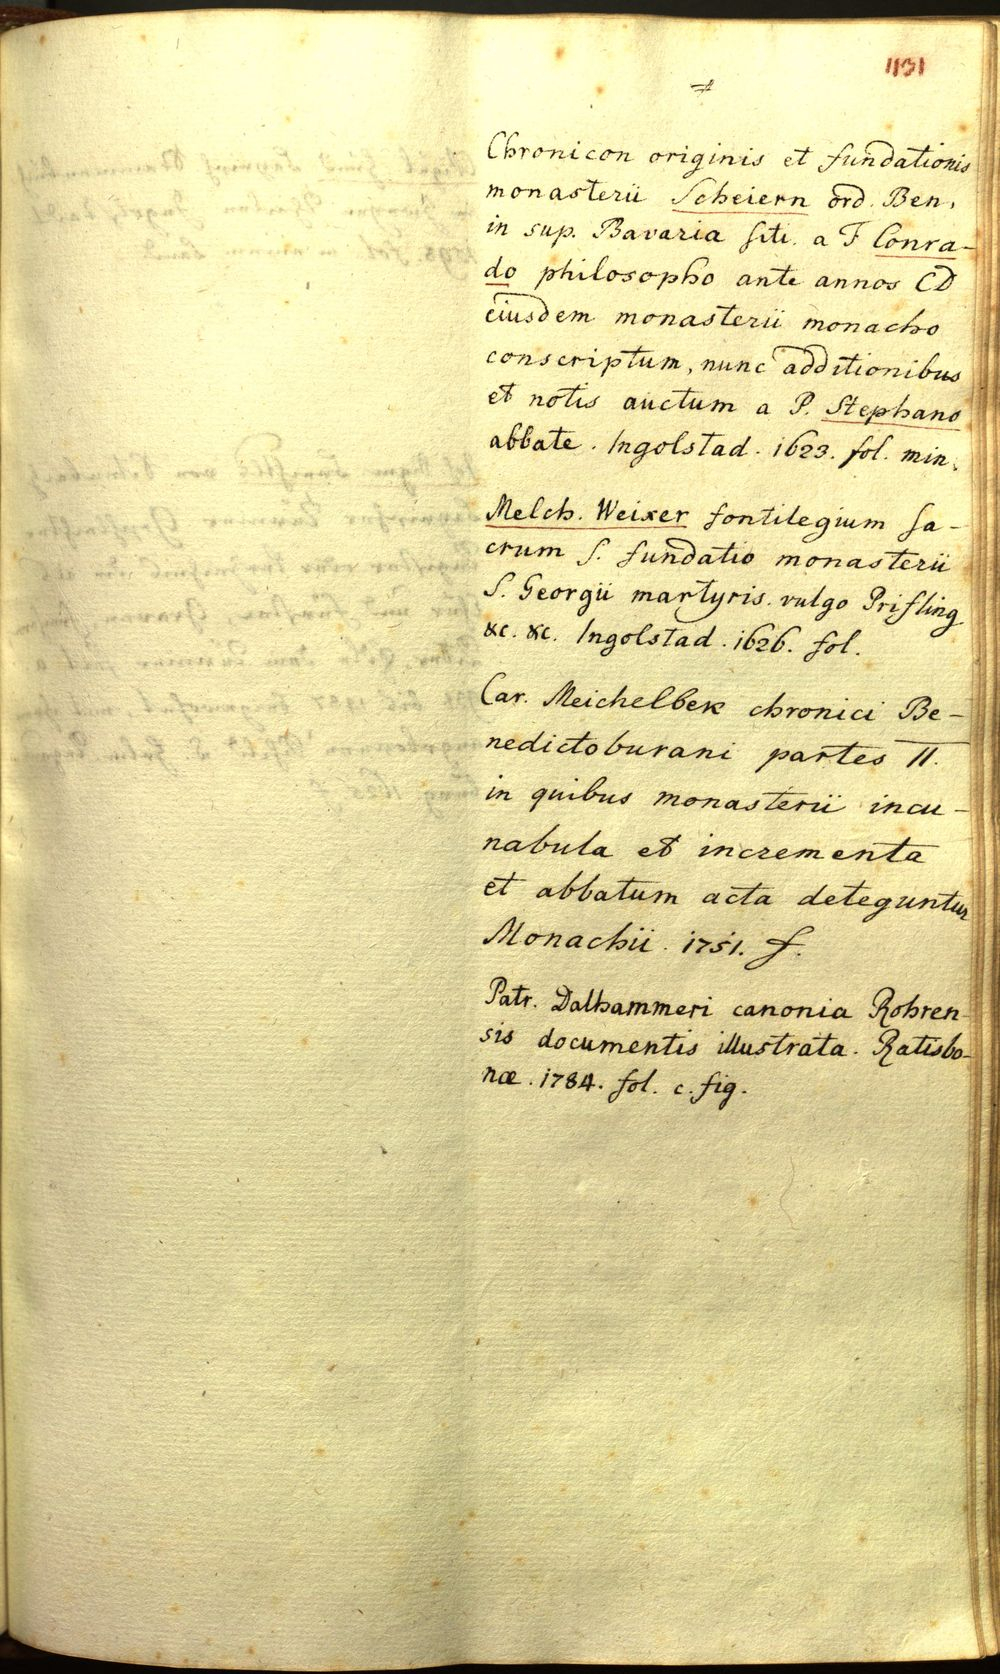 1191
Chronicon originis et fundationis
monasterii Scheiern ord. Ben.
in sup. Bavaria siti. a F Conra-
do philosopho ante annos CD
eiusdem monasterii monacho
conscriptum, nunc additionibus
et notis auctum a P. Stephano
abbate. Ingolstad. 1623. fol. min.
Melch. Weixer fontilegium sa-
crum S. fundatio monasterii
S. Georgii martyris. vulgo Prifling
&c. &c. Ingolstad. 1626. fol.
Car. Meichelbek chronici Be-
nedictoburani partes II.
in quibus monasterii incu-
nabula et incrementa
et abbatum acta deteguntur
Monachii. 1751. f.
Patr. Dalhammeri canonia Rohren-
sis documentis illustrata. Ratisbo-
næ. 1784. fol. c. fig.